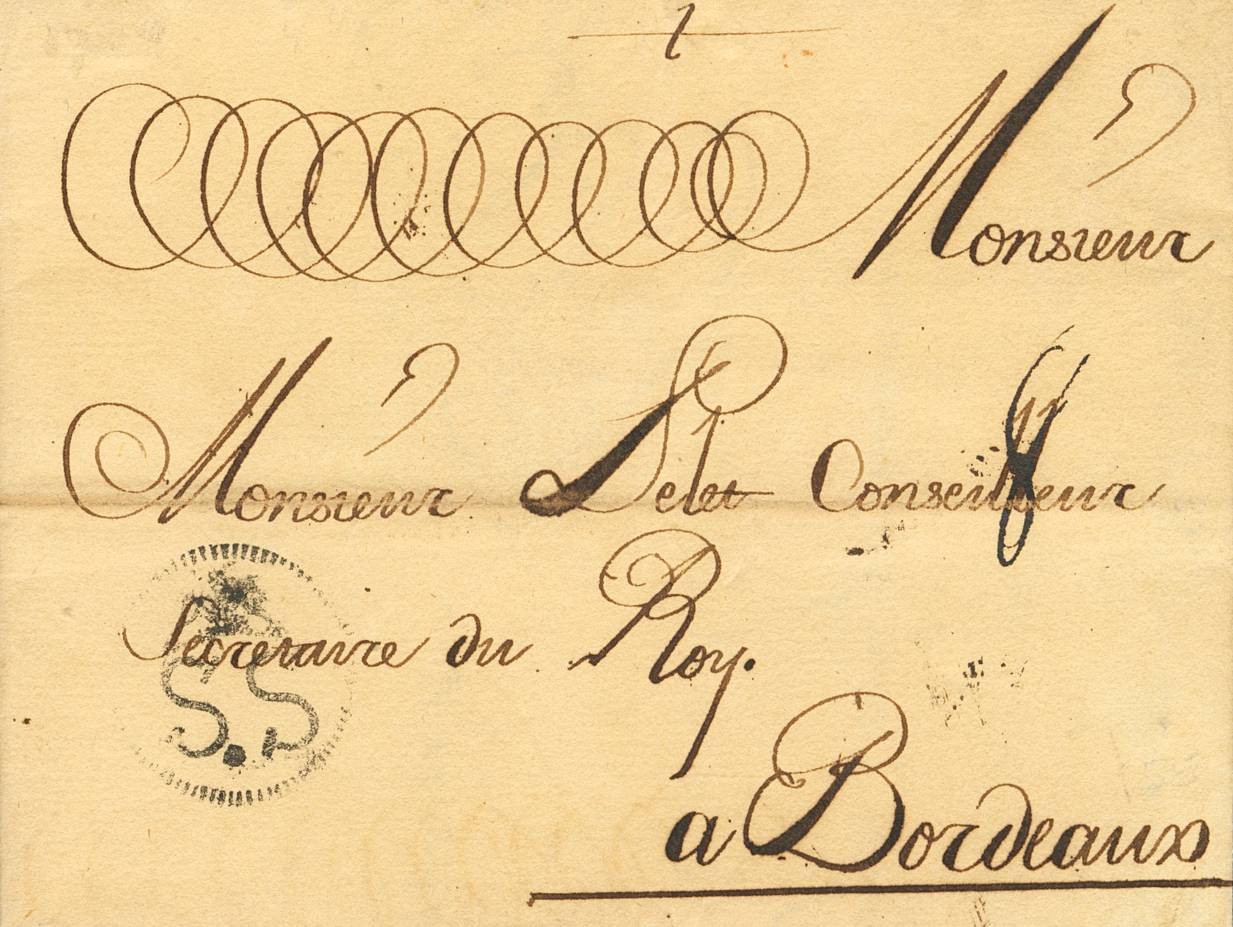 Monsieur
Monsieur Lelet Conseilleur
8
Secretaire du Roy.
S.S
a Bordeaux